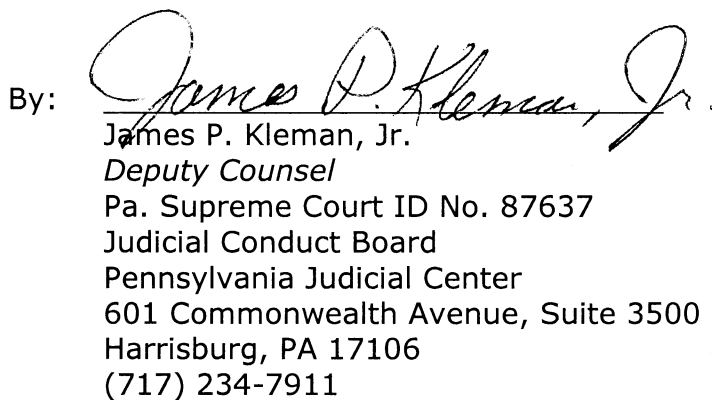 By: James P. Kleman, Jr.
James P. Kleman, Jr.
Deputy Counsel
Pa. Supreme Court ID No. 87637
Judicial Conduct Board
Pennsylvania Judicial Center
601 Commonwealth Avenue, Suite 3500
Harrisburg, PA 17106
(717) 234-7911